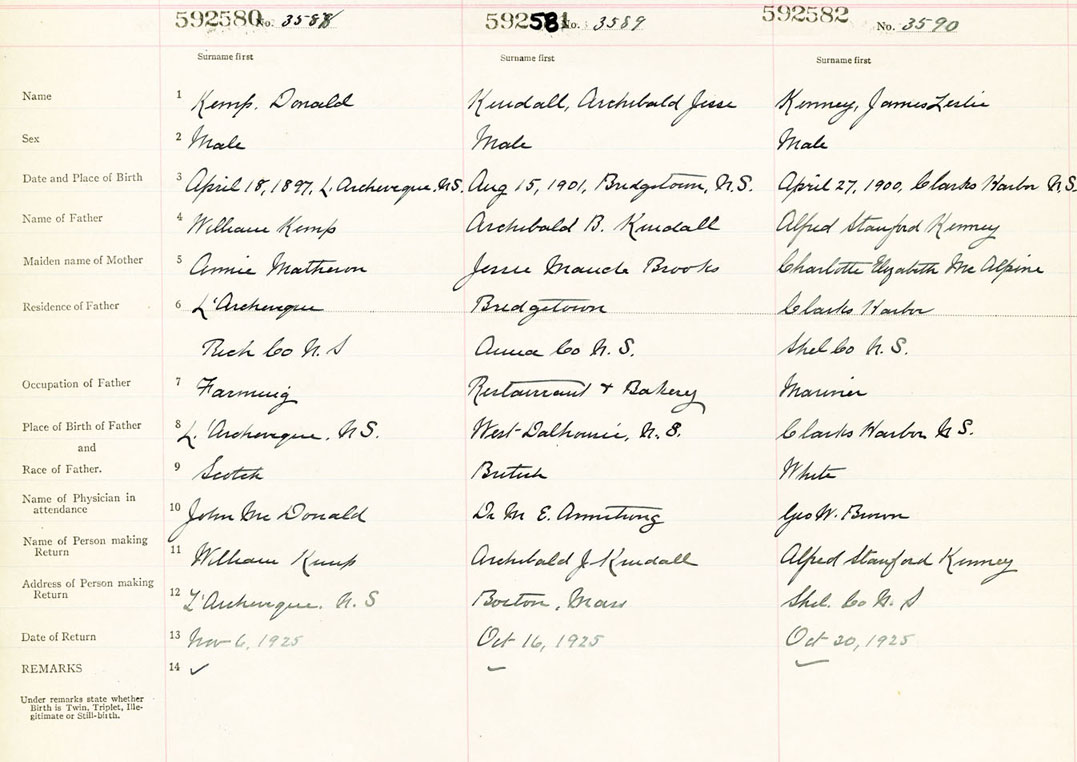 592580 No. 3588 592581 No. 3589 592582 No. 3590
Surname first Surname first Surname first
Name 1 Kemp, Donald Kendall, Archibald Jesse Kenney, James Leslie
Sex 2 Male Male Male
Date and Place of Birth 3 April 18, 1897, L. Archeveque, N.S. Aug 15, 1901, Bridgetown, N.S. April 27, 1900, Clarks Harbor N.S.
Name of Father 4 William Kemp Archibald B. Kendall Alfred Stanford Kenney
Maiden name of Mother 5 Annie Matheson Jessie Maude Brooks Charlotte Elizabeth Mc Alpine
Residence of Father 6 L'Archeveque Bridgetown Clarks Harbor
Rich Co N.S Anna Co N.S. Shel Co N.S.
Occupation of Father 7 Farming Restaurant + Bakery Mariner
Place of Birth of Father 8 L.'Archeveque, N.S. West Dalhousie, N.S. Clarks Harbor N.S.
and
Race of Father. 9 Scotch British White
Name of Physician in
attendance 10 John Mc Donald Dr M E. Armstrong Geo W. Brown
Name of Person making
Return 11 William Kemp Archibald J. Kendall Alfred Stanford Kenney
Address of Person making
Return 12 L'Archeveque, N.S Boston, Mass Shel. Co N.S
Date of Return 13 Nov 6, 1925 Oct 16, 1925 Oct 20, 1925
REMARKS 14 ✓
Under remarks state whether
Birth is Twin, Triplet, Ille-
gitimate or Still-birth.